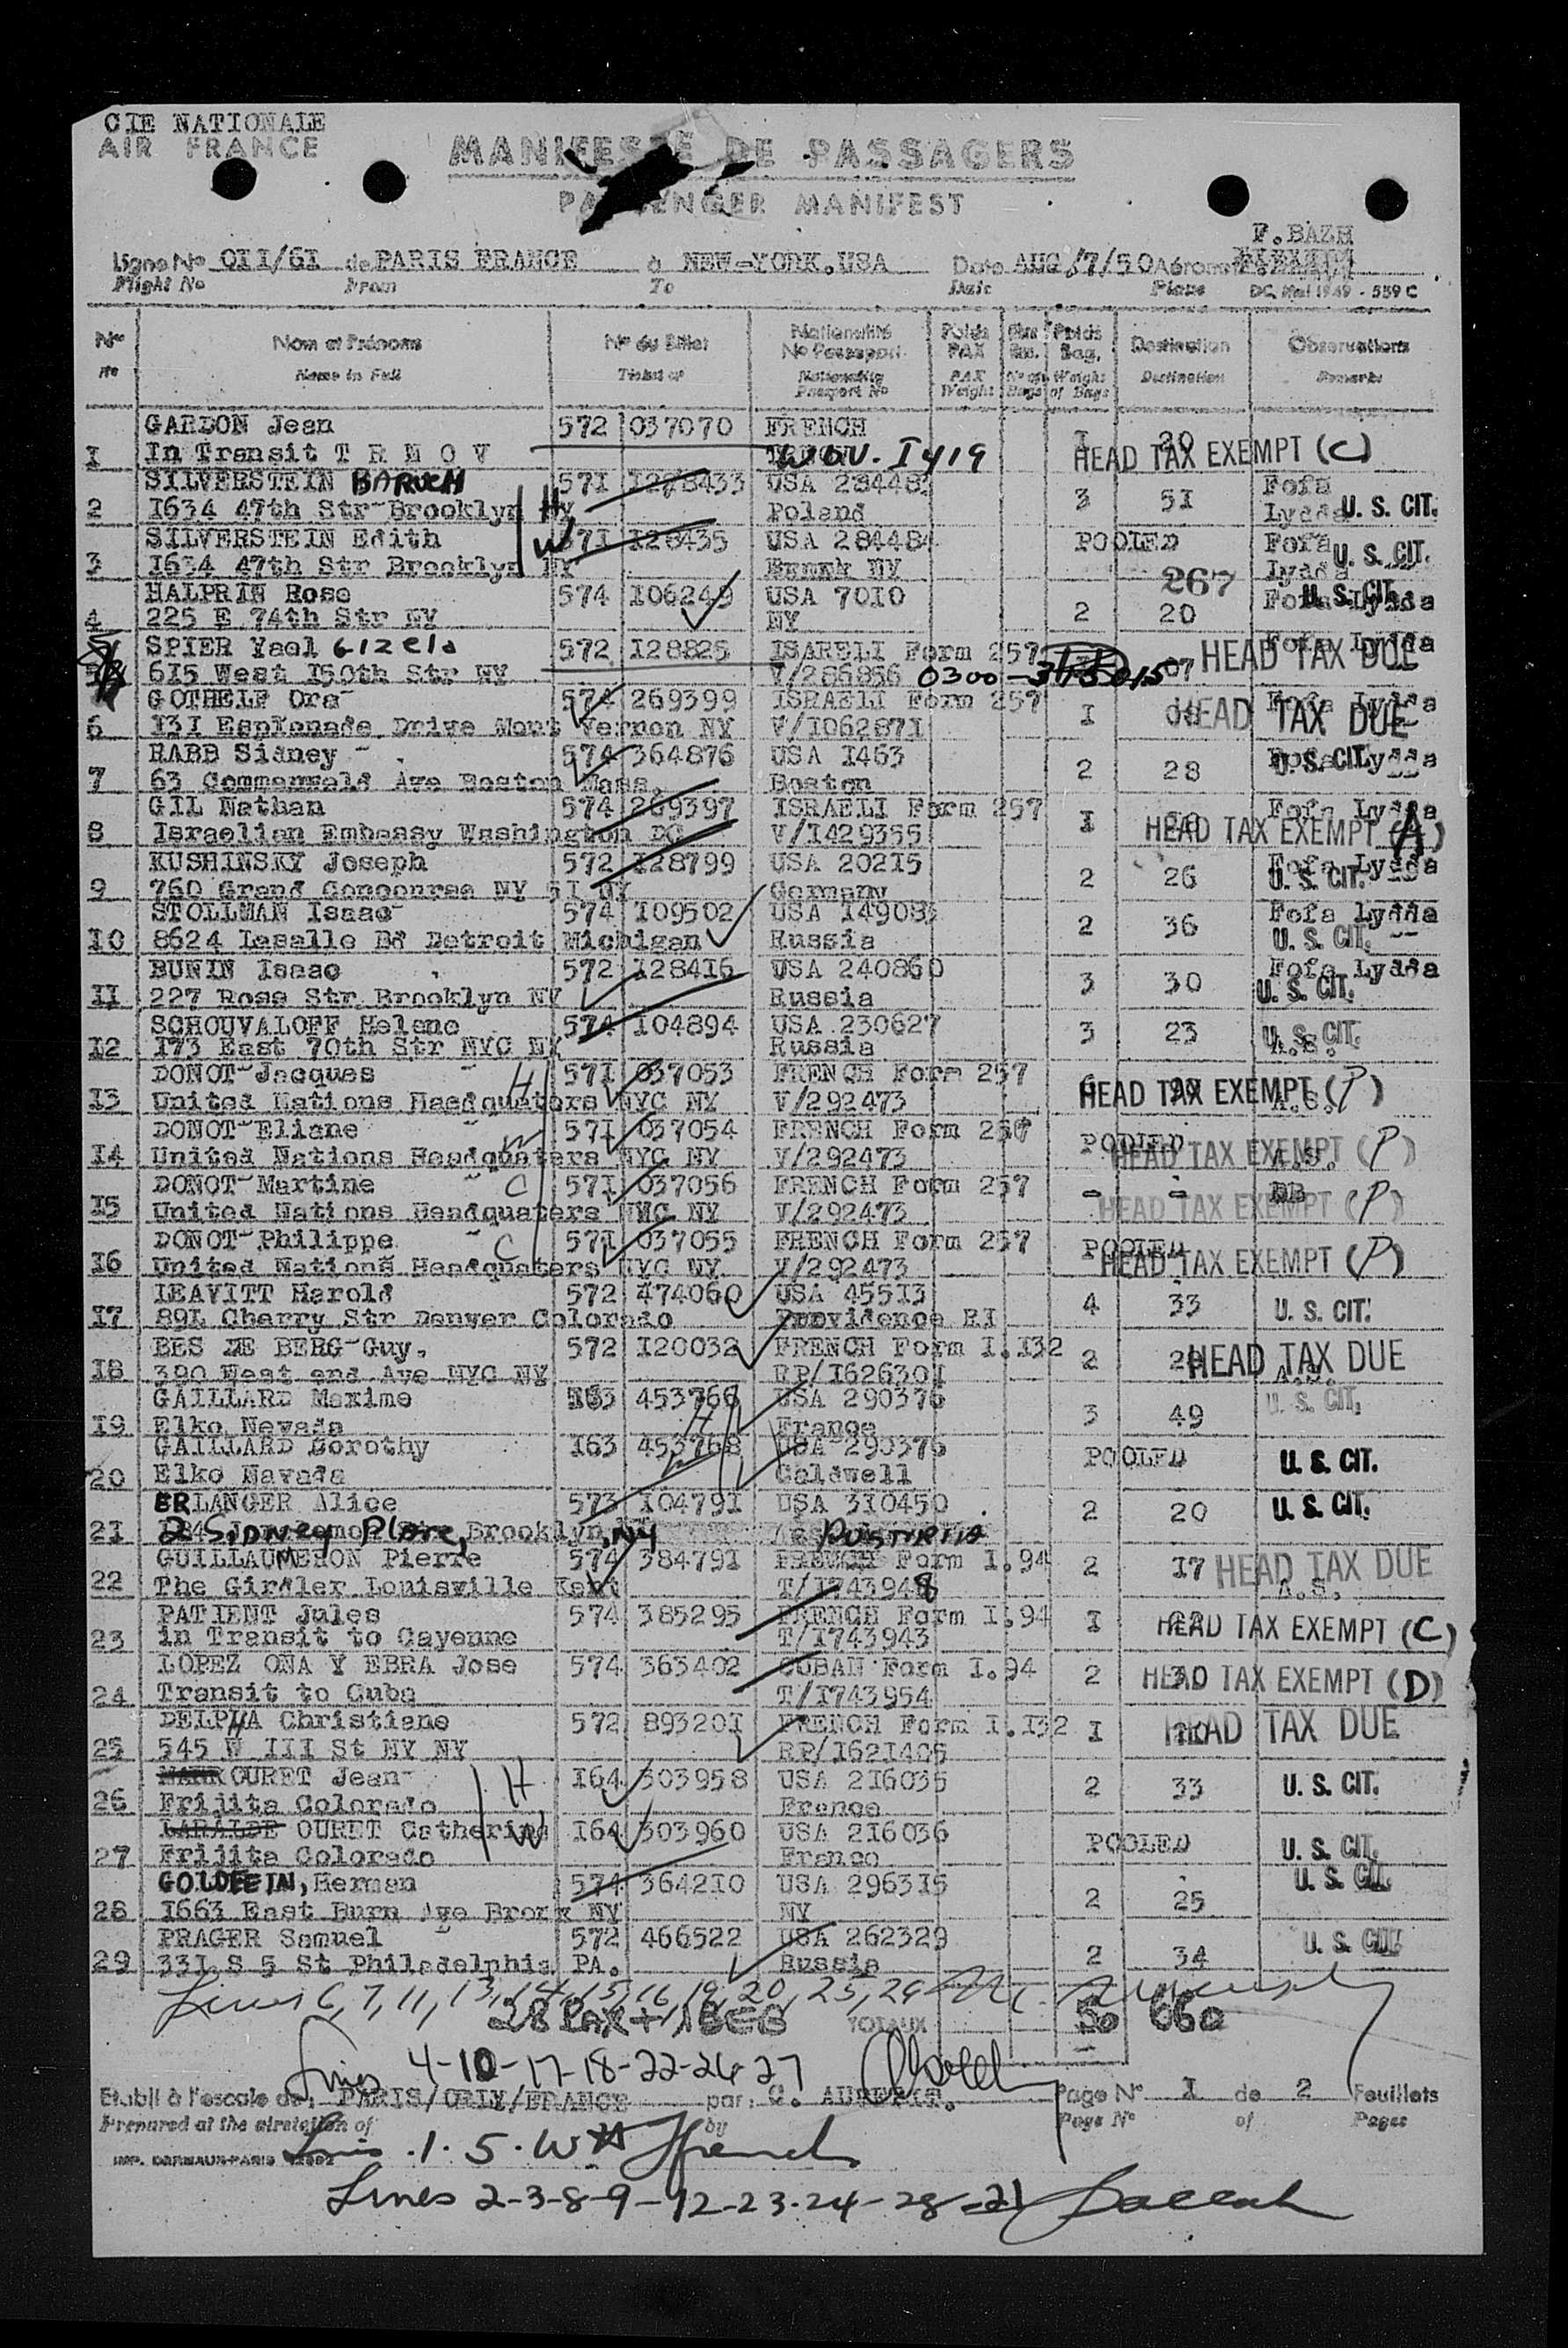 CIE NATIONALE
AIR FRANCE
MANIFESTE DE PASSAGERS
PASSENGER MANIFEST
F.BAZH
Ligne No OII/6I de PARIS FRANCE à NEW-YORK.USA Date AUG/7/50 Aéronef
Flight No From To Date Plane DC. Mai 1949 - 559 C
Nos Nom et Prénoms No du Billet Nationalité No Passeport Poids PAX Poids Bag. Destination Observations
Name in Full Ticket no Nationality Passport No PAX Weight No of Bags Weight of Bags Destination Remarks
GARDON Jean 572 037070 FRENCH
I In Transit T R M O V I419 I 20 HEAD TAX EXEMPT (C)
SILVERSTEIN BARUCH 571 USA Fofa
2 I634 47th Str Brooklyn NY H Poland 3 5I Lydda U. S. CIT.
SILVERSTEIN Edith W 57I I28435 USA 284484 POOLED Fofa U. S. CIT.
3 I634 47th Str Brooklyn NY NY Lydda
HALPRIN Rose 574 I06249 USA 70I0 267 Fofa Lydda U. S. CIT.
4 225 E 74th Str NY NY 2 20
SPIER Yael Gizela 572 I28825 ISARELI Form 257 Fofa Lydda HEAD TAX DUE
5 6I5 West I50th Str NY V/286856 0300- 07
GOTHELF Ora 574 269399 ISRAELI Form 257 Fofa Lydda
6 I3I Esplanade Drive Mont Vernon NY V/I06287I I HEAD TAX DUE
RABB Sidney 574 364876 USA I463 Fofa Lydda U. S. CIT.
7 63 Commonwald Ave Boston Mass. Boston 2 28
GIL Nathan 574 269397 ISRAELI Form 257 Fofa Lydda
8 Israelian Embassy Washington DC V/I429355 I HEAD TAX EXEMPT (A)
KUSHINSKY Joseph 572 I28799 USA 202I5 Fofa Lydda
9 760 Grand Concourse NY 5I NY Germany 2 26 U. S. CIT.
STOLLMAN Isaac 574 I09502 USA Fofa Lydda
I0 8624 Lasalle Bd Detroit Michigan Russia 2 36 U. S. CIT.
BUNIN Isaac 572 I284I6 USA 240860 Fofa Lydda
II 227 Ross Str Brooklyn NY Russia 3 30 U. S. CIT.
SCHOUVALOFF Helene 574 I04894 USA 230627
I2 I73 East 70th Str NYC NY Russia 3 23 U. S. CIT. A.S.
DONOT Jacques H 57I 037053 FRENCH Form 257
I3 United Nations Headquaters NYC NY V/292473 HEAD TAX EXEMPT (P) A.S.
DONOT Eliane W 57I 037054 FRENCH Form 257 POOLED
I4 United Nations Headquaters NYC NY V/292473 HEAD TAX EXEMPT (P) A.S.
DONOT Martine C 57I 037056 FRENCH Form 257 - - BB
I5 United Nations Headquaters NYC NY V/292473 HEAD TAX EXEMPT (P)
DONOT Philippe C 57I 037055 FRENCH Form 257 POOLED
I6 United Nations Headquaters NYC NY V/292473 HEAD TAX EXEMPT (P)
LEAVITT Harold 572 474060 USA 455I3
I7 89L Cherry Str Denver Colorado Providence RI 4 33 U. S. CIT.
BES DE BERG Guy. 572 I20032 FRENCH Form I.I32
I8 390 West end Ave NYC NY RP/I62630I 2 HEAD TAX DUE
GAILLARD Maxime I63 453766 USA 290376 U. S. CIT.
I9 Elko Nevada H France 3 49
GAILLARD Dorothy I63 453768 USA 290376 POOLED
20 Elko Navada W Caldwell U. S. CIT.
ERLANGER Alice 573 I0479I USA 3I0450
2I 2 Sidney Place, Brooklyn, NY 2 20 U. S. CIT.
GUILLAUMERON Pierre 574 38479I FRENCH Form I.94
22 The Girdler Louisville Kent T/I743948 2 I7 HEAD TAX DUE A.S.
PATIENT Jules 574 385295 FRENCH Form I.94
23 in Transit to Cayenne T/I743943 I HEAD TAX EXEMPT (C)
LOPEZ ONA Y EBRA Jose 574 363402 CUBAN Form I.94
24 Transit to Cuba T/I743954 2 30 HEAD TAX EXEMPT (D)
DELPHA Christiane 572 89320I FRENCH Form I.I32
25 545 W III St NY NY RP/I62I405 I HEAD TAX DUE
OURET Jean H I64 303958 USA 2I6035
26 Frijita Colorado France 2 33 U. S. CIT.
OURET Catherine W I64 303960 USA 2I6036 POOLED
27 Frijita Colorado France U. S. CIT.
GOLDFEIN, Herman 574 3642I0 USA 2963I5 U. S. CIT.
28 I663 East Burn Ave Bronx NY NY 2 25
PRAGER Samuel 572 466522 USA 262329 U. S. CIT.
29 33I S 5 St Philadelphia PA. Russia 2 34
Lines 6, 7, 11, 13, 14, 15, 16, 19, 20, 25, 29
28 PAX + 1 BEB TOTAUX 50 660
Lines 4-10-17-18-22-26-27
Etabli à l'escale de: PARIS/ORLY/FRANCE par: C. Page No I de 2 Feuillets
Prepared at the airstation of by Page No of Pages
Lines 1. 5.
Lines 2-3-8-9-12-23-24-28-21